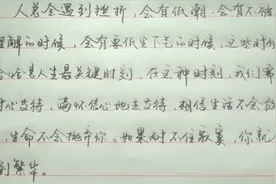 人总会遇到挫折，会有低潮，会有不被
理解的时候，会有要低声下气的时候，这些时候
恰恰是人生最关键时刻，在这种时刻，我们需
耐心支待，满怀信心地去支待，相信生活不会放
生命不会抛弃你。如果耐不住寂寞，你就
到繁华。